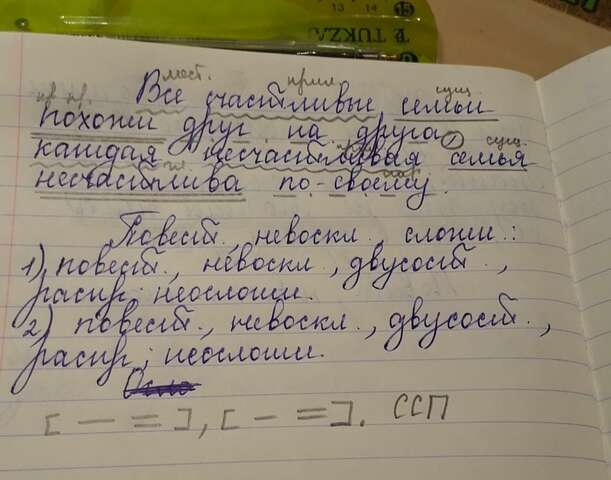 13 14
TUKZA
мест. прил. сущ.
Все счастливые семьи
кр. пр.
похожи друг на друга,
сущ.
каждая несчастливая семья
несчастлива по-своему.
Повест., невоскл. сложн.:
1) повест., невоскл., двусост.,
распр; неосложн.
2) повест., невоскл., двусост.,
распр; неосложн.
[ — = ], [ — = ]. ССП